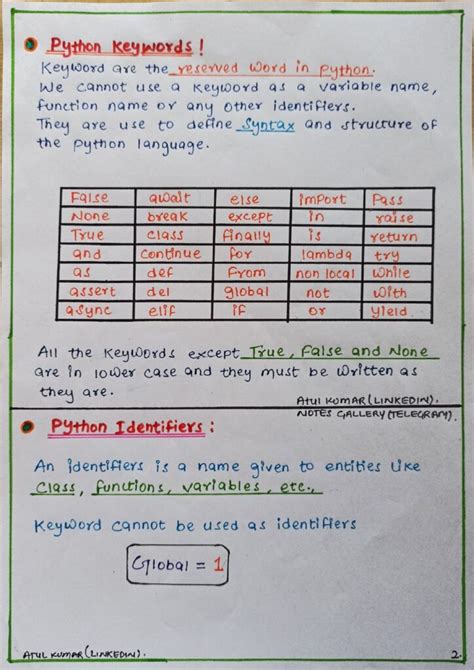 Python Keywords !
Keyword are the reserved word in python.
We cannot use a keyword as a variable name,
function name or any other identifiers.
They are use to define Syntax and structure of
the python language.
False await else import Pass
None break except in raise
True class finally is return
and continue for lambda try
as def From non local While
assert del global not with
async elif if or yield
All the keywords except True, False and None
are in lower case and they must be written as
they are.
ATUL KUMAR (LINKEDIN).
NOTES GALLERY (TELEGRAM).
Python Identifiers :
An identifiers is a name given to entities like
class, functions, variables, etc.,
Keyword cannot be used as identifiers
Global = 1
ATUL KUMAR (LINKEDIN).
2.